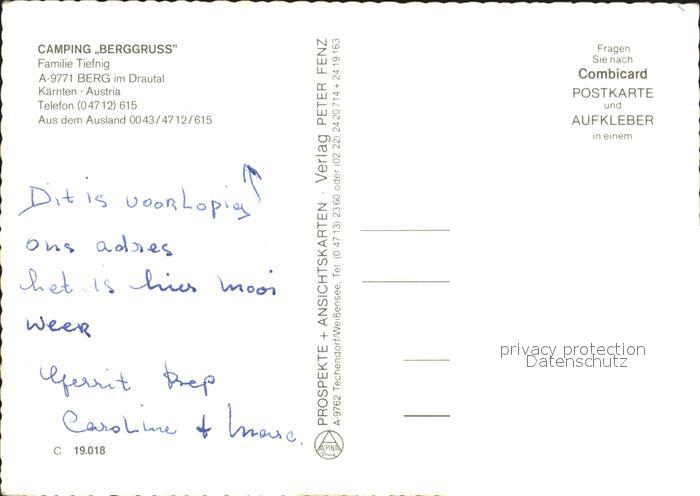 CAMPING „BERGGRUSS”
Familie Tiefnig
A-9771 BERG im Drautal
Kärnten · Austria
Telefon (04712) 615
Aus dem Ausland 0043/4712/615
Dit is voorlopig
ons adres
het is hier mooi
weer
Gerrit Bep
Caroline + Marc.
C 19.018
PROSPEKTE + ANSICHTSKARTEN · Verlag PETER FENZ
A-9762 Techendorf/Weißensee, Tel. (0 47 13) 23 60 oder (02 22) 24 20 714 + 24 19 163
Fragen
Sie nach
Combicard
POSTKARTE
und
AUFKLEBER
in einem
privacy protection
Datenschutz